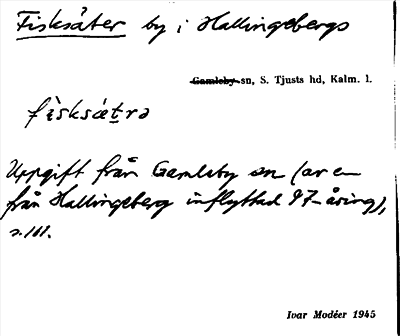 Fisksäter by i Hallingebergs
Gamleby sn, S. Tjusts hd, Kalm. l.
fisksætrə
Uppgift från Gamleby sn (av en
från Hallingeberg inflyttad 97-åring),
s. 111.
Ivar Modéer 1945